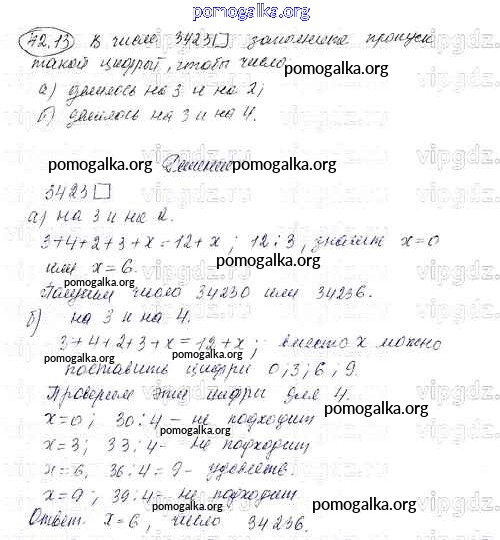 pomogalka.org
42.13 В числе 3423□ заполните пропуск
такой цифрой, чтобы число:
pomogalka.org
а) делилось на 3 и на 2;
б) делилось на 3 и на 4.
pomogalka.org Решение pomogalka.org
3423□
а) на 3 и на 2.
pomogalka.org
3+4+2+3+x=12+x; 12:3, значит x=0
или x=6.
pomogalka.org
Получим число 34230 или 34236.
б) на 3 и на 4.
pomogalka.org
3+4+2+3+x=12+x; вместо x можно
pomogalka.org
поставить цифры 0; 3; 6; 9.
Проверяем эти цифры для 4.
pomogalka.org
x=0; 30:4 – не подходит
pomogalka.org
x=3; 33:4 – не подходит
x=6, 36:4=9 – удовлетв.
pomogalka.org
x=9; 39:4 – не подходит
Ответ. x=6, число 34236.
pomogalka.org